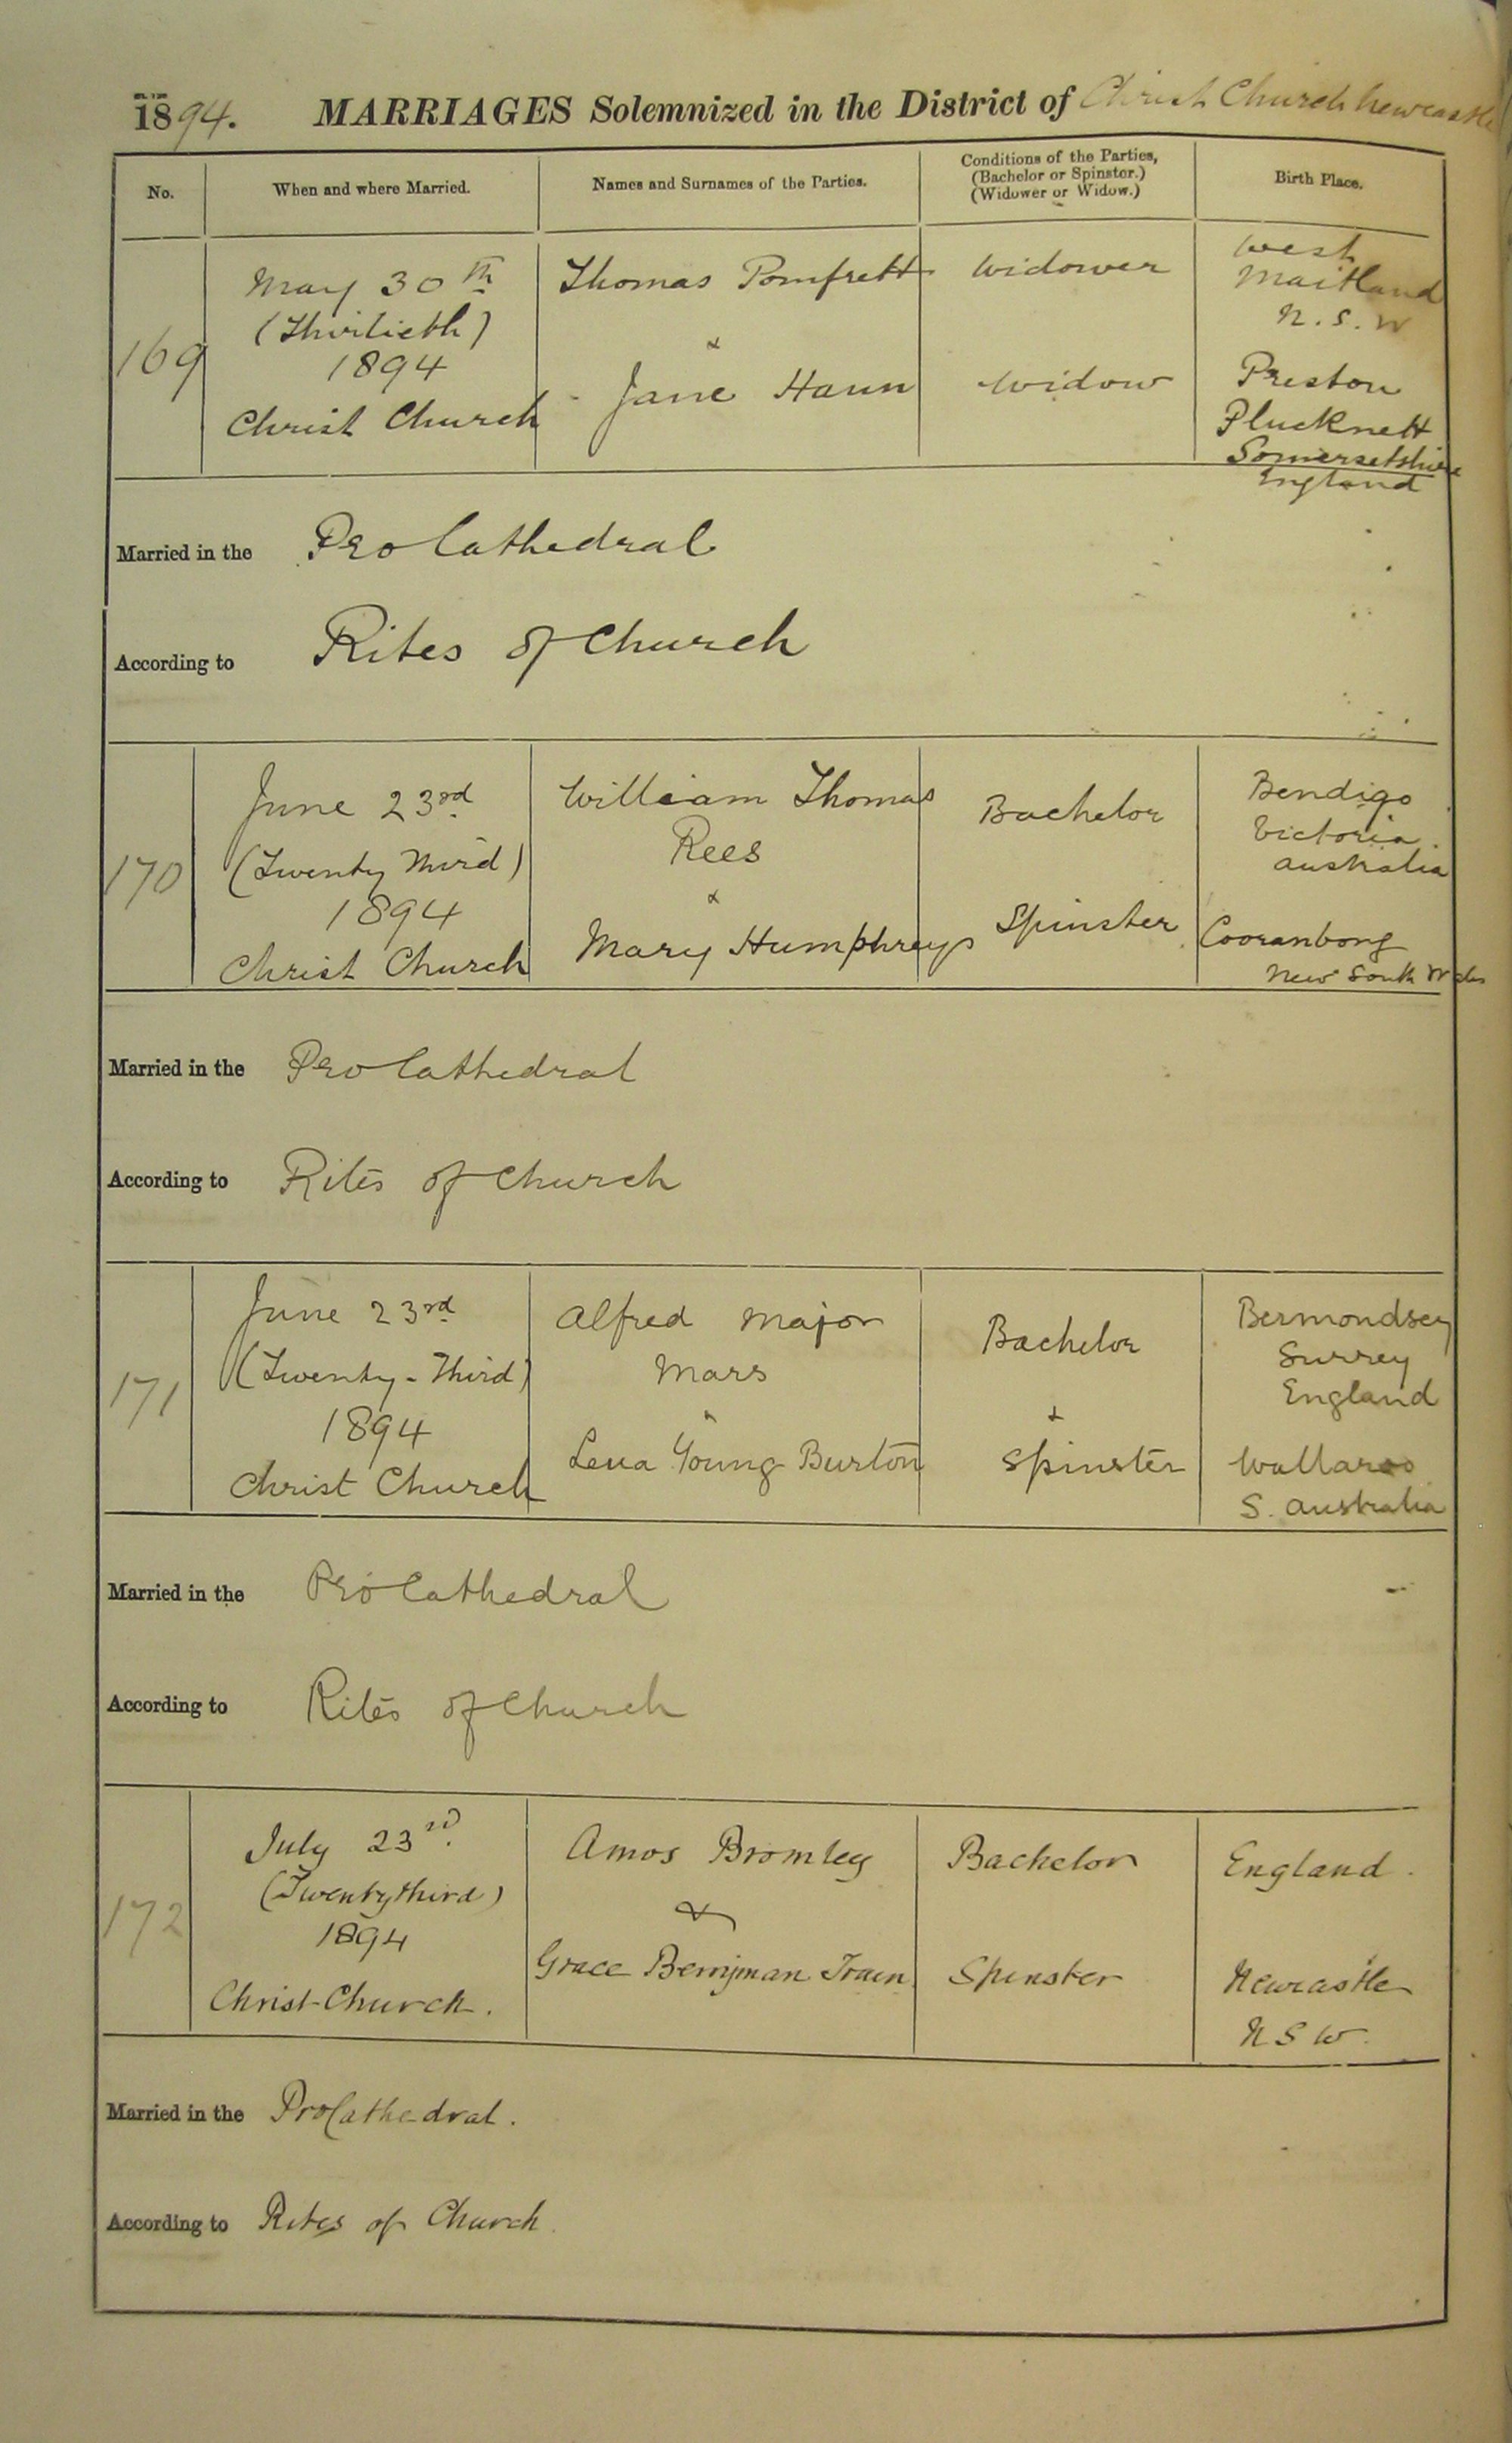 1894. MARRIAGES Solemnized in the District of Christ Church Newcastle
No. When and where Married. Names and Surnames of the Parties. Conditions of the Parties, (Bachelor or Spinster.) (Widower or Widow.) Birth Place.
169
May 30th
(Thirtieth)
1894
Christ Church
Thomas Pomfrett
&
Jane Hann
Widower
Widow
West
Maitland
N.S.W
Preston
Plucknett
Somersetshire
England
Married in the Pro Cathedral
According to Rites of Church
170
June 23rd
(Twenty Third)
1894
Christ Church
William Thomas
Rees
&
Mary Humphreys
Bachelor
Spinster
Bendigo
Victoria
Australia
Cooranbong
New South Wales
Married in the Pro Cathedral
According to Rites of Church
171
June 23rd
(Twenty-Third)
1894
Christ Church
Alfred Major
Mars
&
Lena Young Burton
Bachelor
&
Spinster
Bermondsey
Surrey
England
Wallaroo
S. Australia
Married in the Pro Cathedral
According to Rites of Church
172
July 23rd.
(Twentythird)
1894
Christ-Church.
Amos Bromley
&
Grace Berryman
Bachelor
Spinster
England.
Newcastle
N S W.
Married in the ProCathedral.
According to Rites of Church.